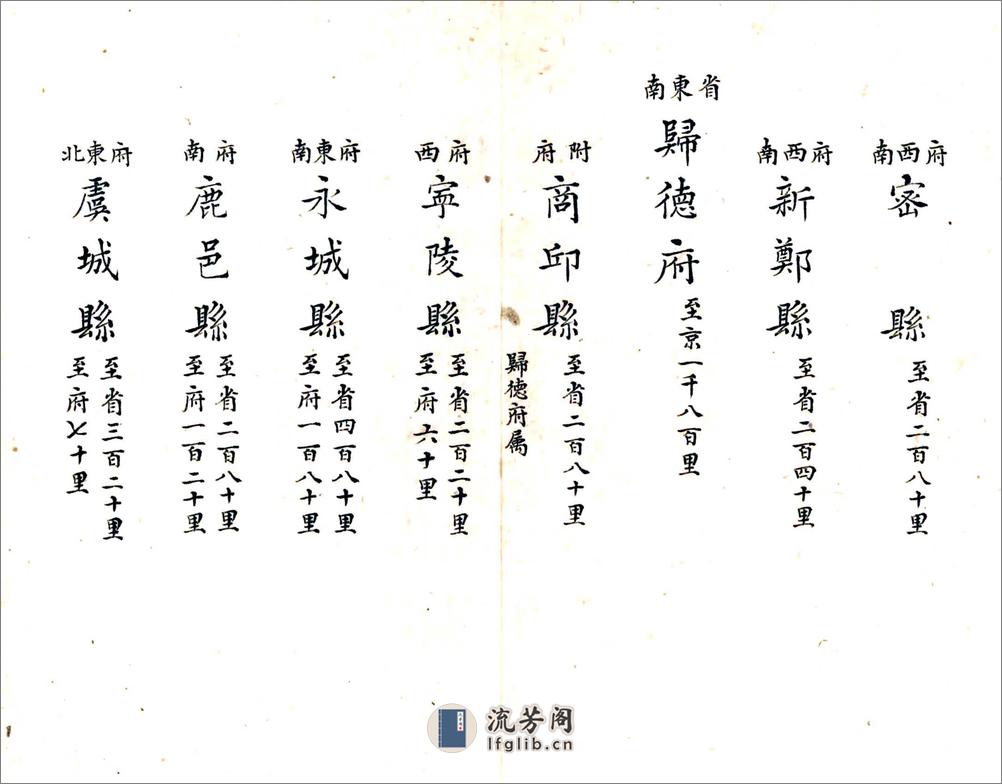 府西南
密縣
至省二百八十里
府西南
新鄭縣
至省二百四十里
省東南
歸德府
至京一千八百里
附府
商邱縣
至省二百八十里
歸德府属
府西
寧陵縣
至省二百二十里
至府六十里
府東南
永城縣
至省四百八十里
至府一百八十里
府南
鹿邑縣
至省二百八十里
至府一百二十里
府東北
虞城縣
至省三百二十里
至府七十里
流芳阁
lfglib.cn